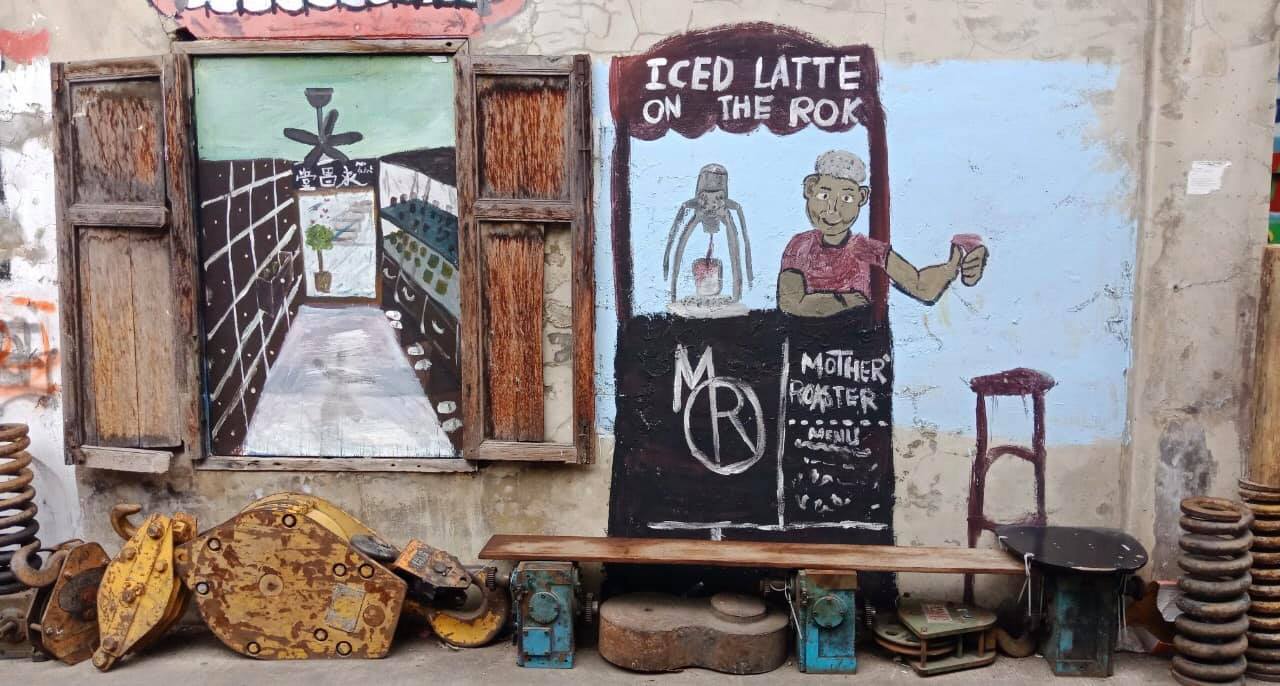 永昌
ICED LATTE
ON THE ROK
MR
MOTHER
ROASTER
MENU